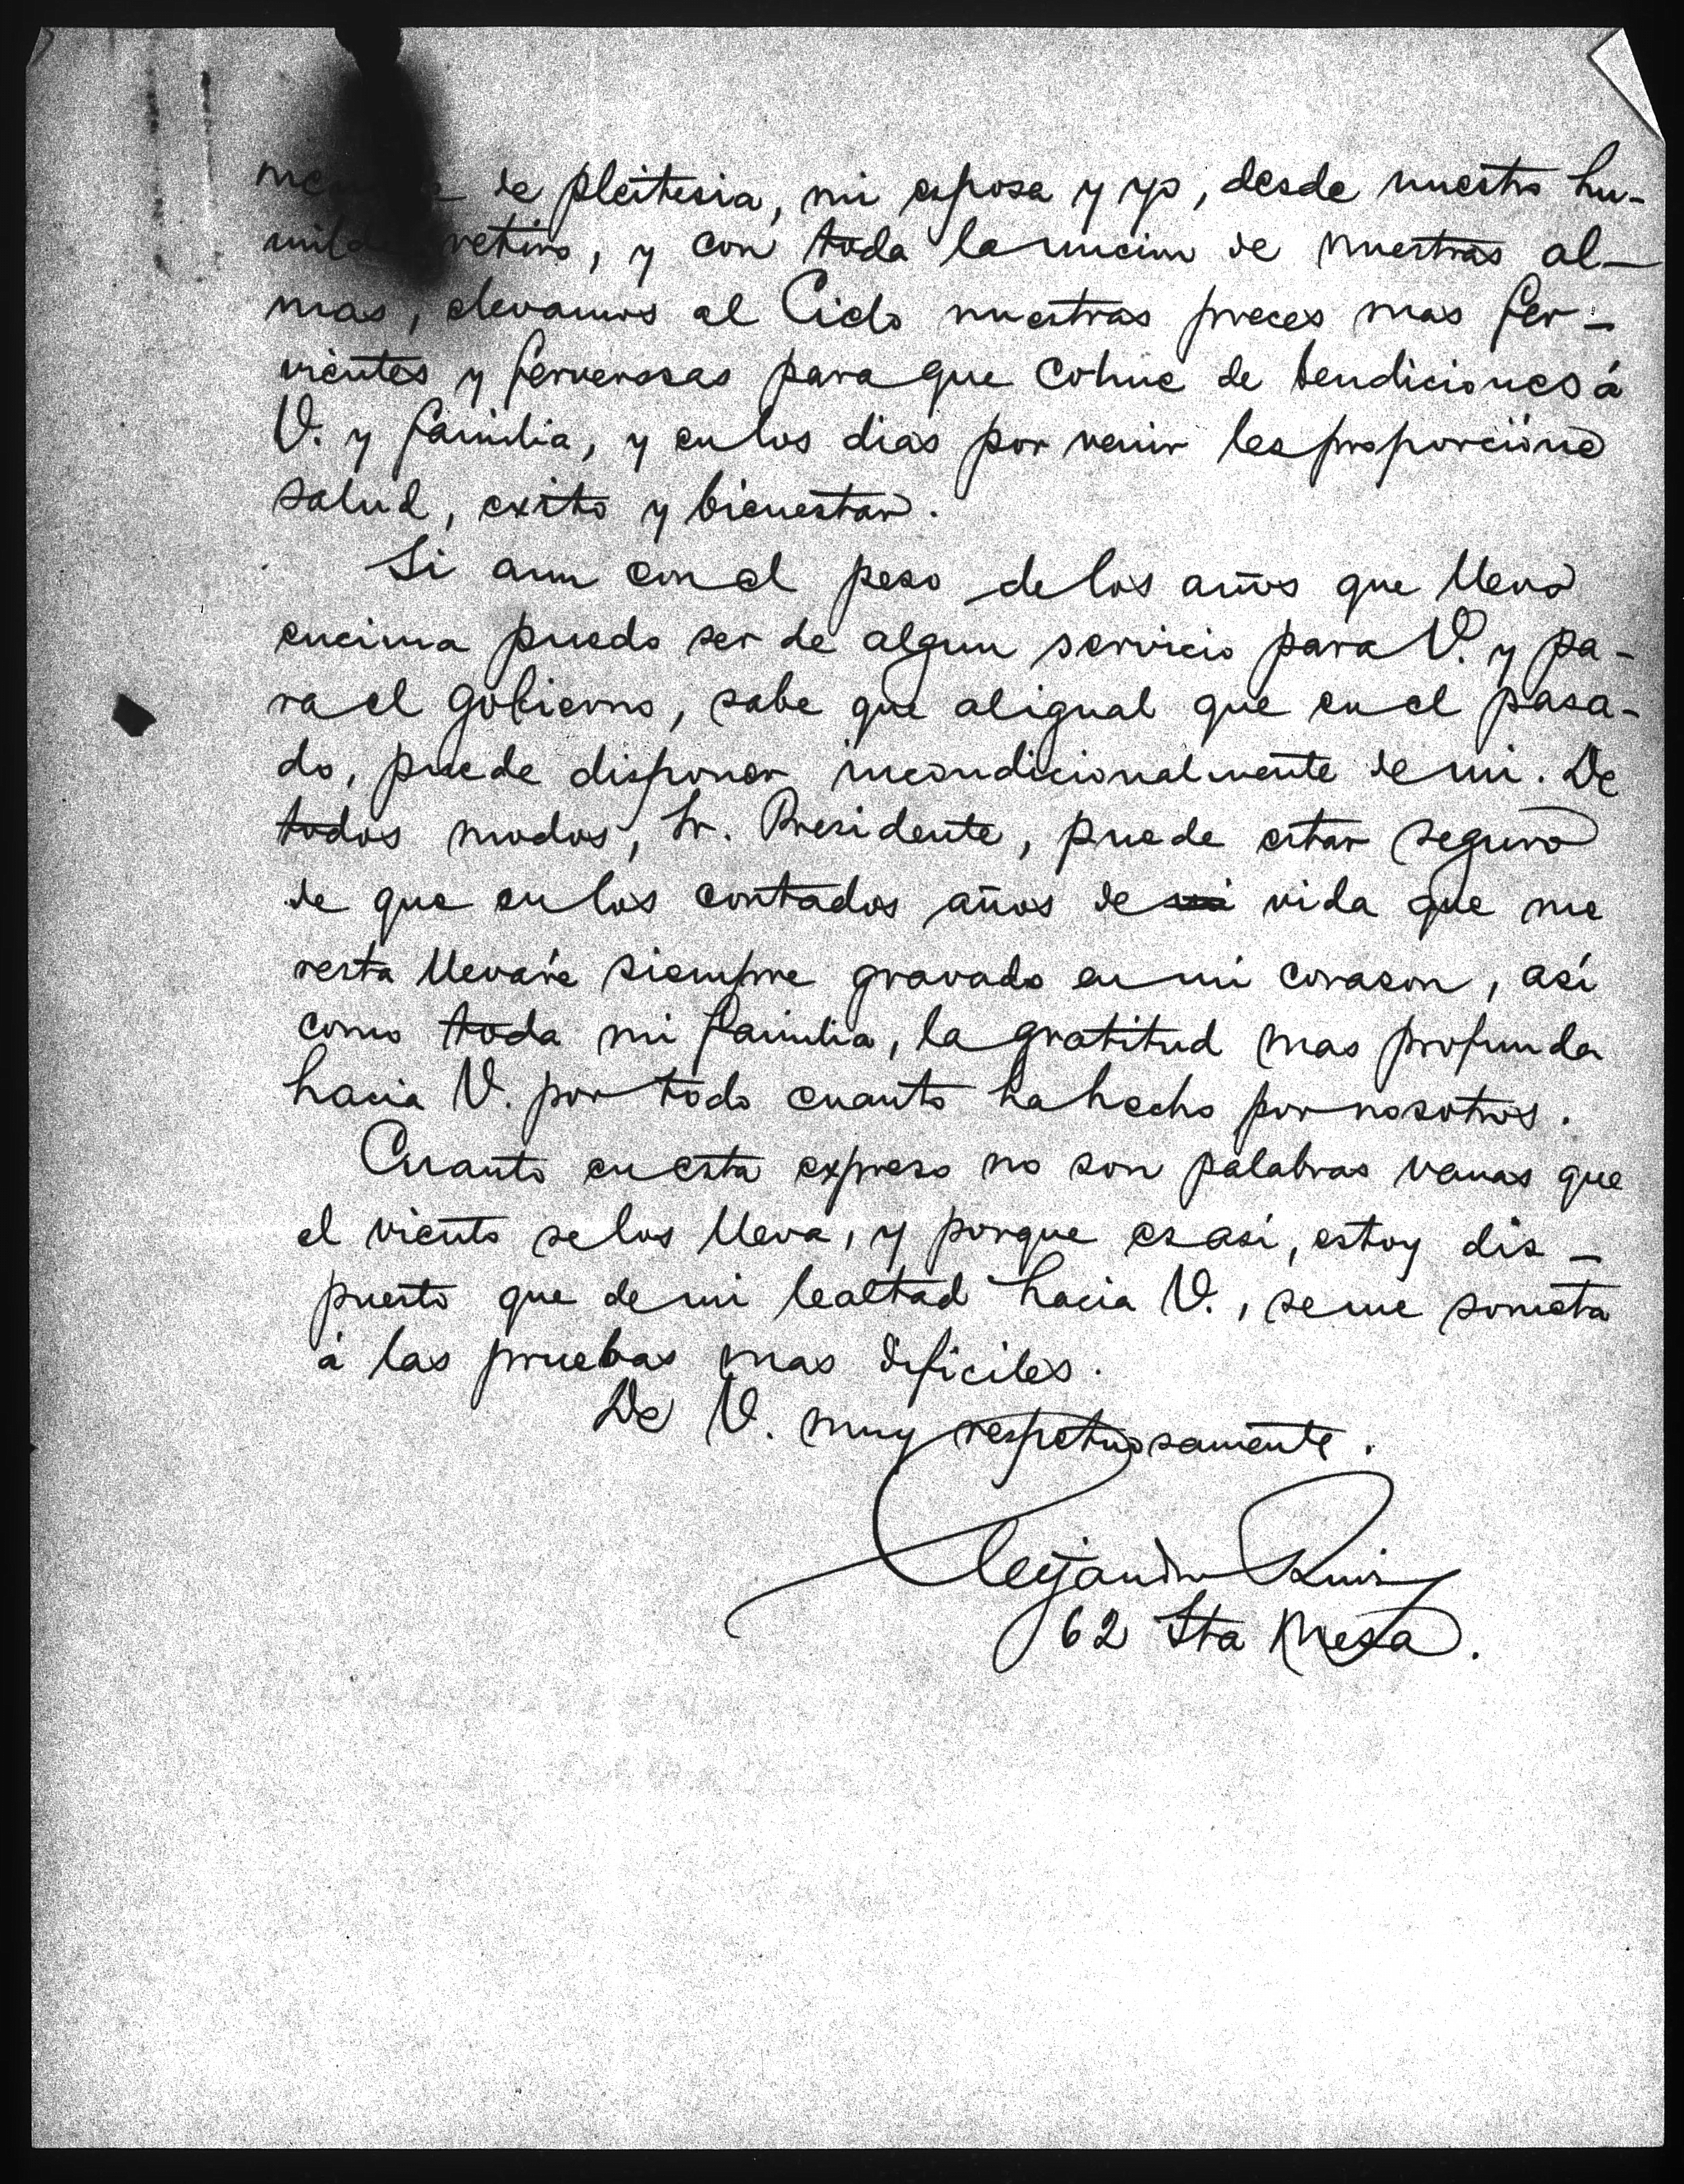 de pleitesia, mi esposa y yo, desde nuestro hu-
milde retiro, y con toda la uncion de nuestras al-
mas, elevamos al Cielo nuestras preces mas fer-
vientes y fervorosas para que colme de bendiciones á
V. y familia, y en los dias por venir les proporcione
salud, exito y bienestar.
Si aun con el peso de los años que llevo
encima puedo ser de algun servicio para V. y pa-
ra el gobierno, sabe que al igual que en el pasa-
do, puede disponer incondicionalmente de mi. De
todos modos, Sr. Presidente, puede estar seguro
de que en los contados años de vida que me
resta llevaré siempre gravado en mi corason, así
como toda mi familia, la gratitud mas profunda
hacia V. por todo cuanto ha hecho por nosotros.
Cuanto en esta expreso no son palabras vanas que
el viento se los lleva, y porque es asi, estoy dis-
puesto que de mi lealtad hacia V., se me someta
á las pruebas mas dificiles.
De V. muy respetuosamente.
Alejandro Ruiz
62 Sta Mesa.